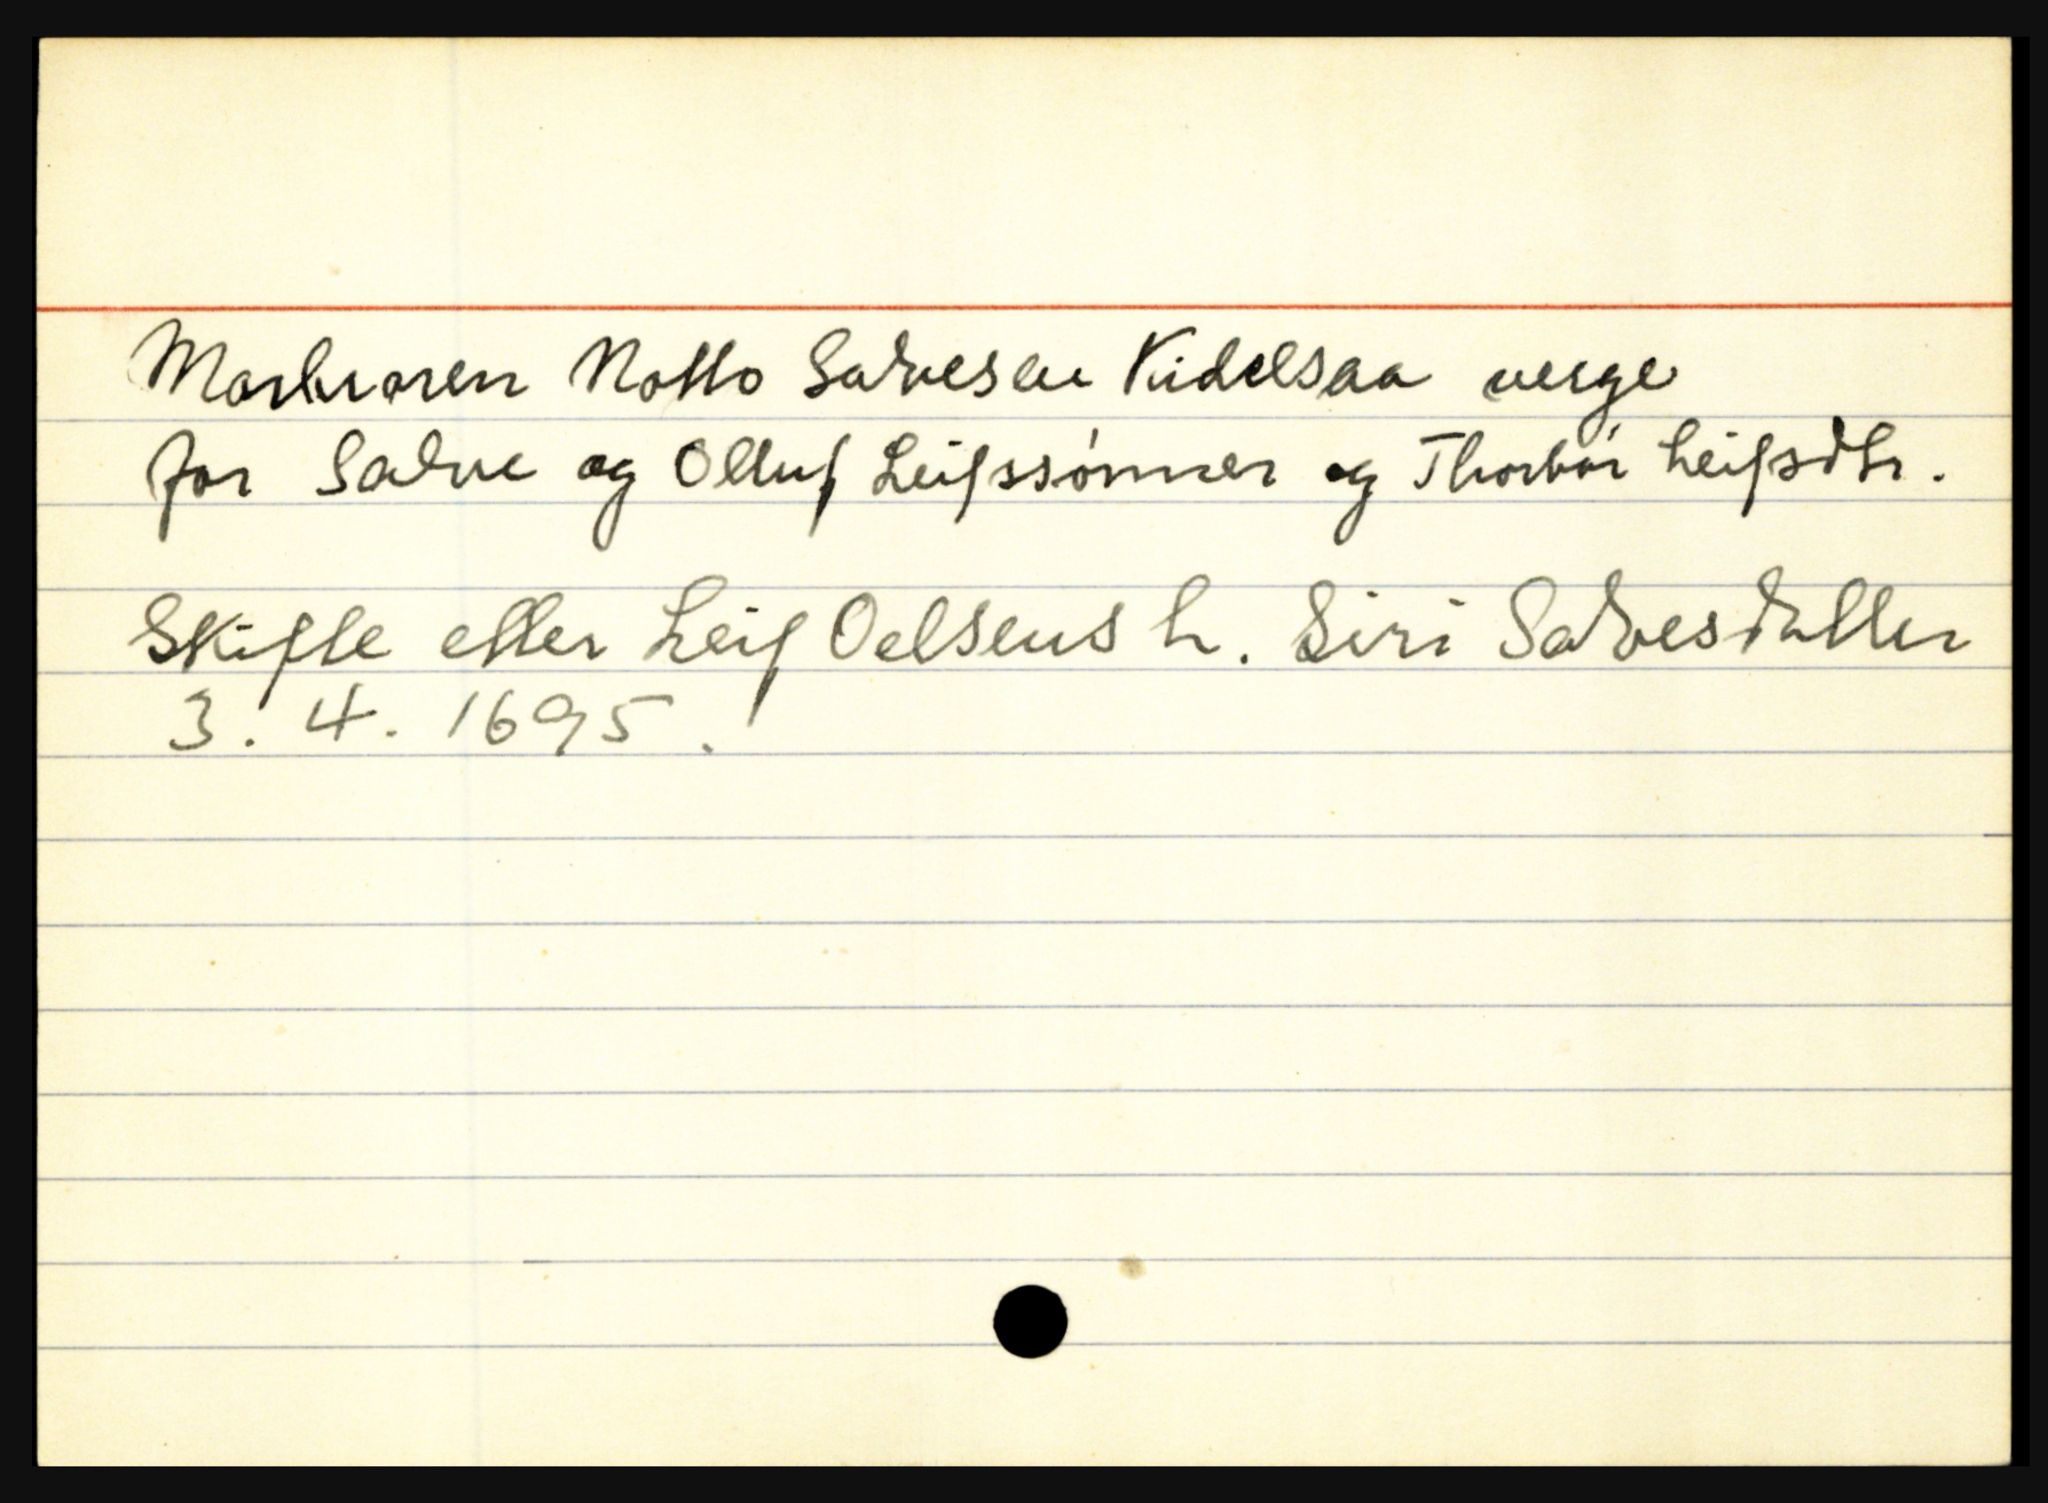 Morbroren Notto Salvesen Kidelsaa verge
for Salve og Olluf Leifssönner og Thorbór Leifsdtr.
Skifte etter Leif Oelsens h. Siri Salvesdatter
3. 4. 1695.